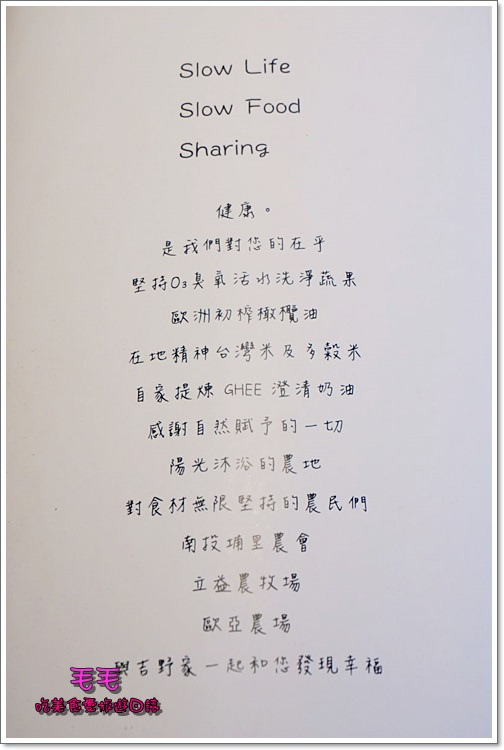 Slow Life
Slow Food
Sharing
健康。
是我們對您的在乎
堅持O₃臭氧活水洗淨蔬果
歐洲初榨橄欖油
在地精神台灣米及多穀米
自家提煉 GHEE 澄清奶油
感謝自然賦予的一切
陽光沐浴的農地
對食材無限堅持的農民們
南投埔里農會
立益農牧場
歐亞農場
與吉野家一起和您發現幸福
毛毛
吃美食愛旅遊口誌